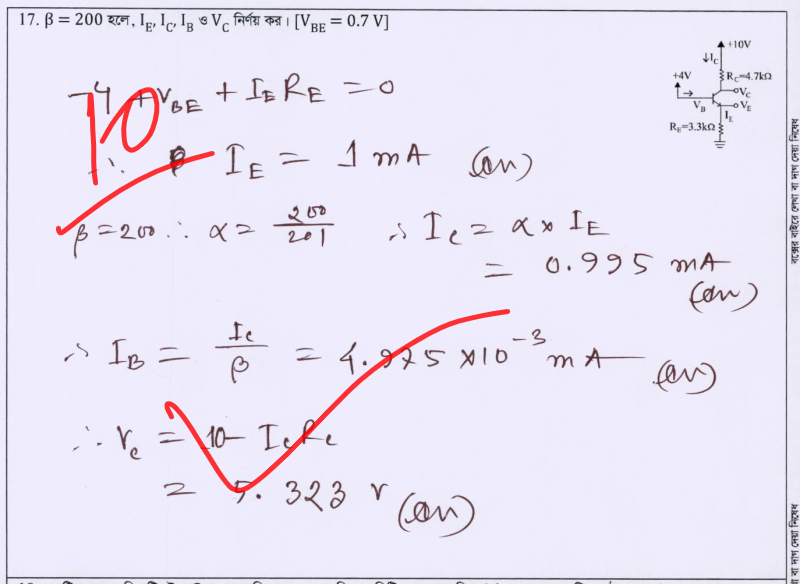 17. β = 200 হলে, I_E, I_C, I_B ও V_C নির্ণয় কর। [V_BE = 0.7 V]
+10V
↓I_C
R_C=4.7kΩ
+4V
V_C
V_B
V_E
I_E
R_E=3.3kΩ
-4 + V_BE + I_E R_E = 0
10
∴ I_E = 1 mA (an)
β = 200 ∴ α = 200/201 ∴ I_C = α × I_E
= 0.995 mA
(an)
∴ I_B = I_C/β = 4.975 × 10^-3 mA (an)
∴ V_C = 10 - I_C R_C
= 5.323 V (an)
বক্সের বাইরে লেখা বা দাগ দেয়া নিষেধ
বা দাগ দেয়া নিষেধ